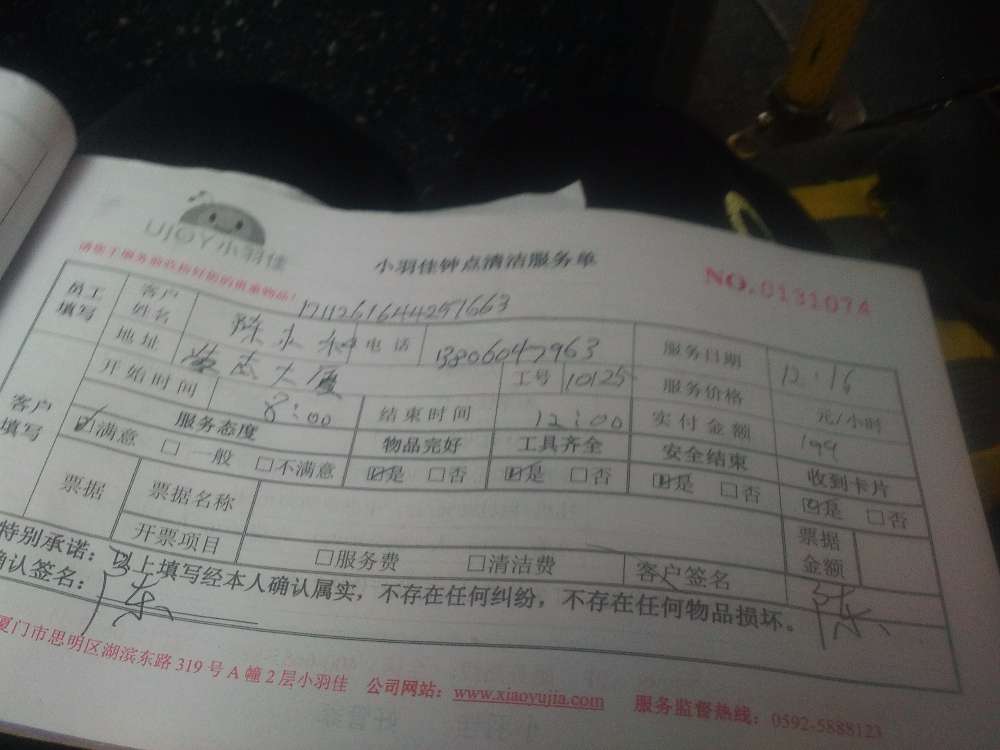 UJOY小羽佳
小羽佳钟点清洁服务单
NO.0131074
请您于服务前收拾好您的贵重物品!
1711261644257663
员工填写 客户姓名 陈 电话 13806047963 服务日期 12:16
地址 大厦 工号 10125 服务价格 元/小时
客户填写 开始时间 8:00 结束时间 12:00 实付金额 199
服务态度 物品完好 工具齐全 安全结束 收到卡片
☑满意 □一般 □不满意 ☑是 □否 ☑是 □否 ☑是 □否 ☑是 □否
票据 票据名称 票据金额
开票项目 □服务费 □清洁费 客户签名 陈
特别承诺:以上填写经本人确认属实,不存在任何纠纷,不存在任何物品损坏。
确认签名:陈
厦门市思明区湖滨东路319号A幢2层小羽佳 公司网站:www.xiaoyujia.com 服务监督热线:0592-5888123